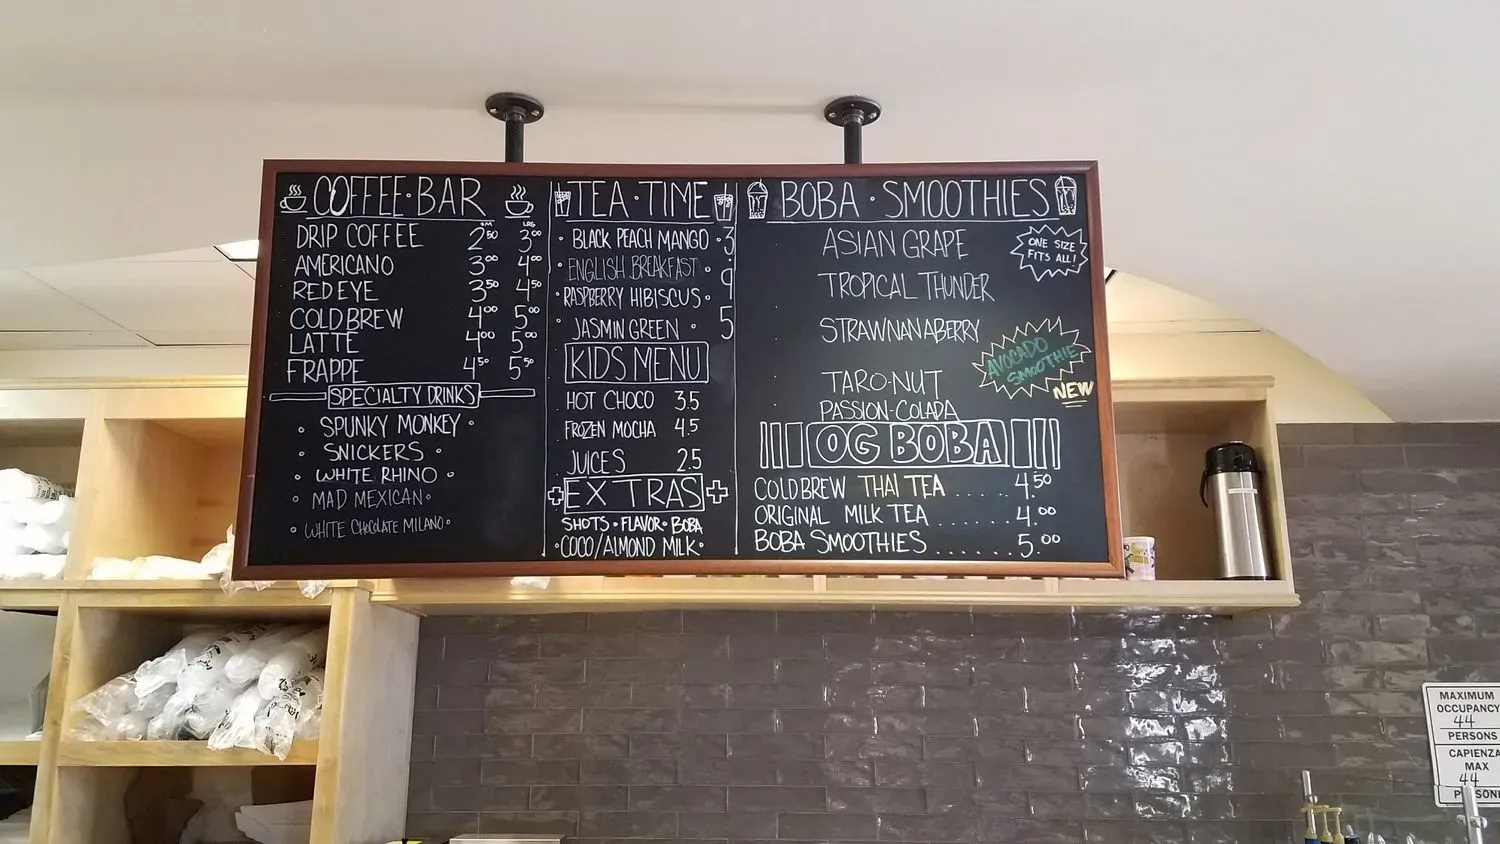 COFFEE·BAR
SM LRG
DRIP COFFEE 2.50 3.00
AMERICANO 3.00 4.00
RED EYE 3.50 4.50
COLD BREW 4.00 5.00
LATTE 4.00 5.00
FRAPPE 4.50 5.50
SPECIALTY DRINKS
· SPUNKY MONKEY ·
· SNICKERS ·
· WHITE RHINO ·
· MAD MEXICAN ·
· WHITE CHOCOLATE MILANO ·
TEA·TIME
· BLACK PEACH MANGO · 3
· ENGLISH BREAKFAST ·
· RASPBERRY HIBISCUS ·
· JASMIN GREEN · 5
KIDS MENU
HOT CHOCO 3.5
FROZEN MOCHA 4.5
JUICES 2.5
EXTRAS
SHOTS · FLAVOR · BOBA
· COCO/ALMOND MILK ·
BOBA · SMOOTHIES
ASIAN GRAPE
ONE SIZE
FITS ALL!
TROPICAL THUNDER
STRAWNANABERRY
AVOCADO
SMOOTHIE
NEW
TARO-NUT
PASSION-COLADA
OG BOBA
COLDBREW THAI TEA ..... 4.50
ORIGINAL MILK TEA ...... 4.00
BOBA SMOOTHIES ...... 5.00
MAXIMUM
OCCUPANCY
44
PERSONS
CAPIENZA
MAX
44